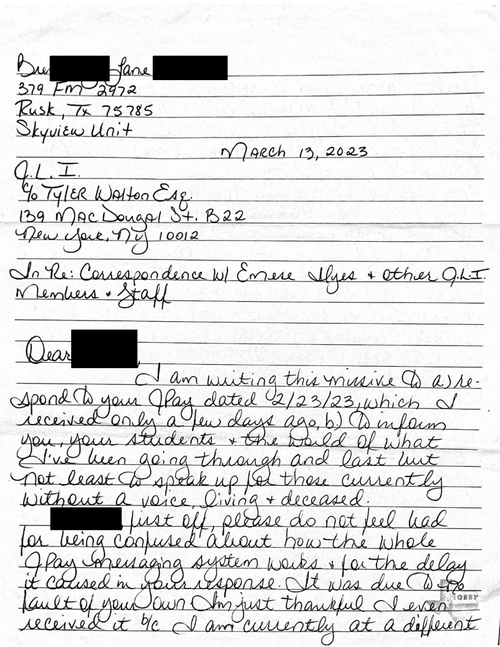 Bre Jane
379 FM 2972
Rusk, Tx 75785
Skyview Unit
March 13, 2023
J.L.I.
c/o Tyler Walton Esq.
139 MacDougal St. B22
New York, NY 10012
In Re: Correspondence w/ Emere Ilyes + other J.L.I.
Members + Staff
Dear
I am writing this missive to a) re-
spond to your JPay dated 2/23/23, which I
received only a few days ago, b) to inform
you, your students + the world of what
I've been going through and last but
not least to speak up for those currently
without a voice, living + deceased.
first off, please do not feel bad
for being confused about how the whole
JPay messaging system works + for the delay
it caused in your response. It was due to no
fault of your own. I'm just thankful I even
received it b/c I am currently at a different